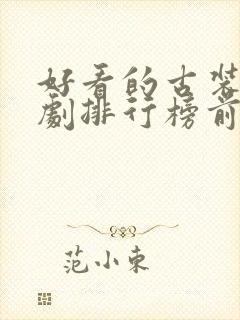 好看的古装
劇排行榜前
范小東